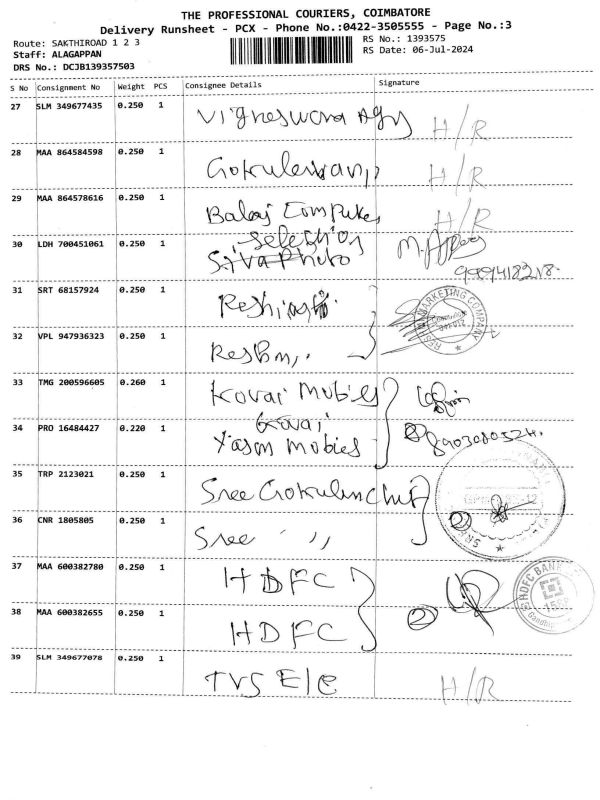 THE PROFESSIONAL COURIERS, COIMBATORE
Delivery Runsheet - PCX - Phone No.:0422-3505555 - Page No.:3
Route: SAKTHIROAD 1 2 3 RS No.: 1393575
Staff: ALAGAPPAN RS Date: 06-Jul-2024
DRS No.: DCJB139357503
S No Consignment No Weight PCS Consignee Details Signature
27 SLM 349677435 0.250 1 Vigneswara Agy H/R
28 MAA 864584598 0.250 1 H/R
29 MAA 864578616 0.250 1 Balaj Computes H/R
30 LDH 700451061 0.250 1 Selection
Siva Photo
31 SRT 68157924 0.250 1
RESHI MARKETING COMPANY
32 VPL 947936323 0.250 1
33 TMG 200596605 0.260 1 Kovai Mobies
34 PRO 16484427 0.220 1 Kovai
Mobies
35 TRP 2123021 0.250 1 Sree Gokulam Chit
36 CNR 1805805 0.250 1 Sree ,,
37 MAA 600382780 0.250 1 HDFC
HDFC BANK
38 MAA 600382655 0.250 1 HDFC 2
39 SLM 349677078 0.250 1 TVS Ele H/R